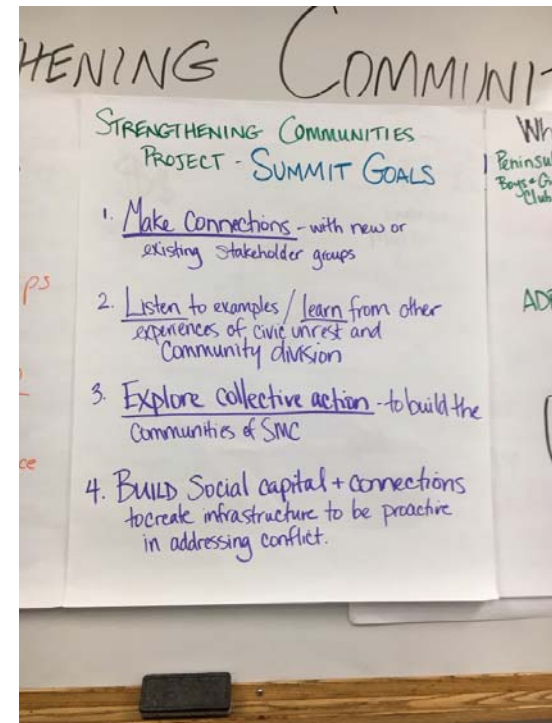 HENING COMMUNI
STRENGTHENING COMMUNITIES
PROJECT - SUMMIT GOALS
1. Make Connections - with new or
existing stakeholder groups
2. Listen to examples / learn from other
experiences of civic unrest and
Community division
3. Explore collective action - to build the
Communities of SMC
4. BUILD Social capital + connections
to create infrastructure to be proactive
in addressing conflict.
ps
ce
Wh
Peninsul
Boys + Gi
Club
AD